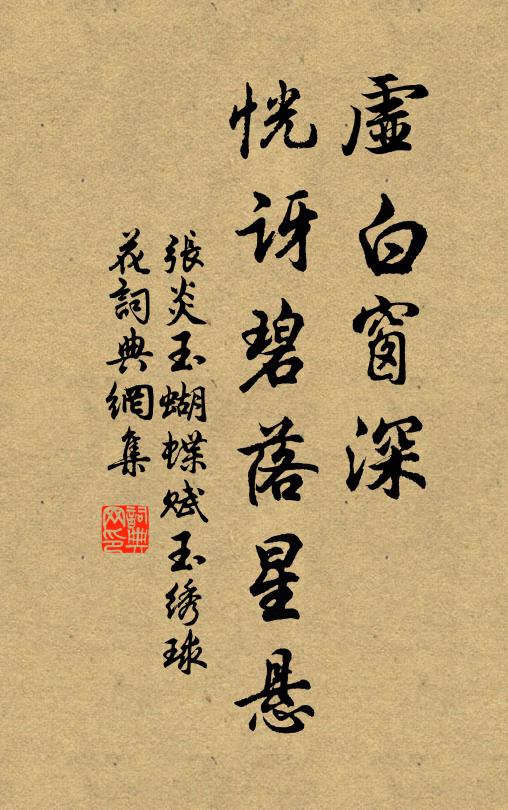 虛白窗深
恍訝碧落星悬
張炎玉蝴蝶赋玉绣球
花詞典網集
詞典
网印